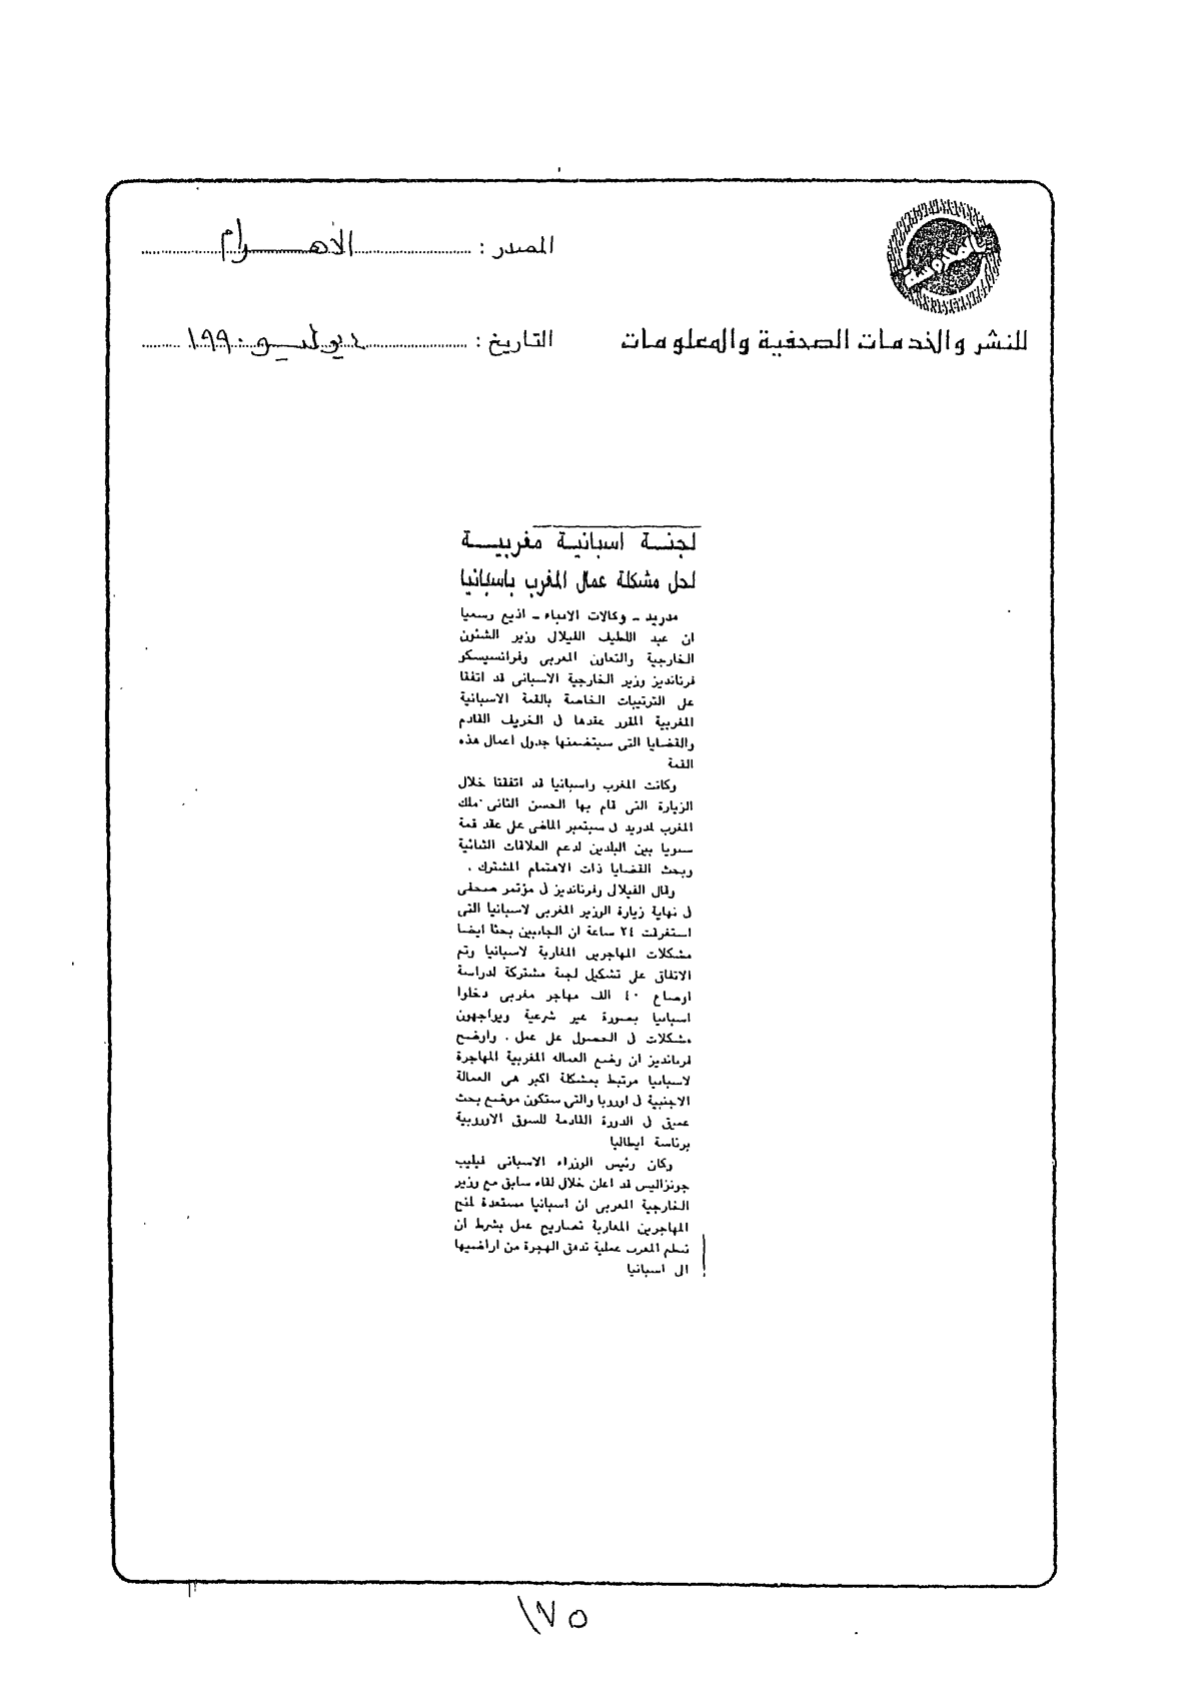 المصدر : الأهرام
للنشر والخدمات الصحفية والمعلومات
التاريخ : يوليو ١٩٩٠
لجنة اسبانية مغربية
لحل مشكلة عمال المغرب باسبانيا
مدريد ـ وكالات الانباء ـ اذيع رسميا
ان عبد اللطيف الفيلالى وزير الشئون
الخارجية والتعاون المغربى وفرانسيسكو
فرنانديز وزير الخارجية الاسبانى قد اتفقا
على الترتيبات الخاصة بالقمة الاسبانية
المغربية المقرر عقدها فى الخريف القادم
والقضايا التى سيتضمنها جدول اعمال هذه
القمة
وكانت المغرب واسبانيا قد اتفقتا خلال
الزيارة التى قام بها الحسن الثانى ملك
المغرب لمدريد فى سبتمبر الماضى على عقد قمة
سنويا بين البلدين لدعم العلاقات الثنائية
وبحث القضايا ذات الاهتمام المشترك .
وقال الفيلالى وفرنانديز فى مؤتمر صحفى
فى نهاية زيارة الوزير المغربى لاسبانيا التى
استغرقت ٢٤ ساعة ان الجانبين بحثا ايضا
مشكلات المهاجرين المغاربة لاسبانيا وتم
الاتفاق على تشكيل لجنة مشتركة لدراسة
اوضاع ٤٠ الف مهاجر مغربى دخلوا
اسبانيا بصورة غير شرعية ويواجهون
مشكلات فى الحصول على عمل . واوضح
فرنانديز ان وضع العماله المغربية المهاجرة
لاسبانيا مرتبط بمشكلة اكبر هى العمالة
الاجنبية فى اوروبا والتى ستكون موضع بحث
عميق فى الدورة القادمة للسوق الاوروبية
برئاسة ايطاليا
وكان رئيس الوزراء الاسبانى فيليب
جونزاليس قد اعلن خلال لقاء سابق مع وزير
الخارجية المغربى ان اسبانيا مستعدة لمنح
المهاجرين المغاربة تصاريح عمل بشرط ان
تنظم المغرب عملية تدفق الهجرة من اراضيها
الى اسبانيا
١٧٥